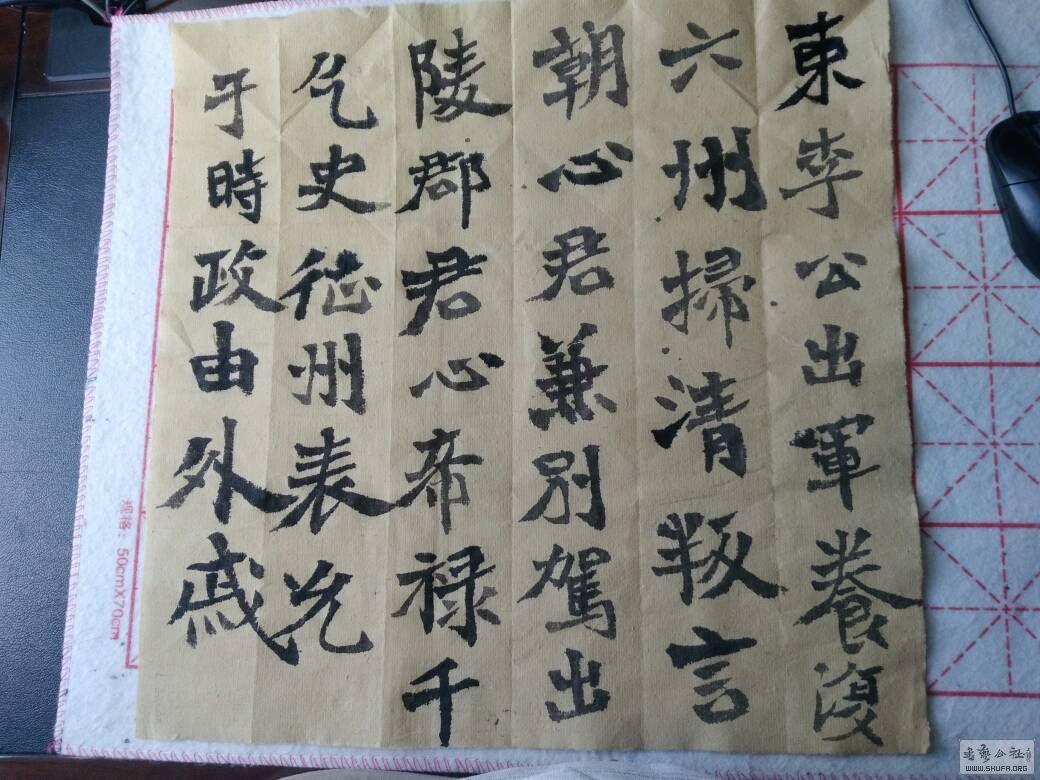 東李公出軍養復
六州掃清叛言
朝心君兼別駕出
陵郡君心帝祿千
乞史従州表允
于時政由外戚
规格：50cmX70cm
書藝公社
WWW.SHUFA.ORG